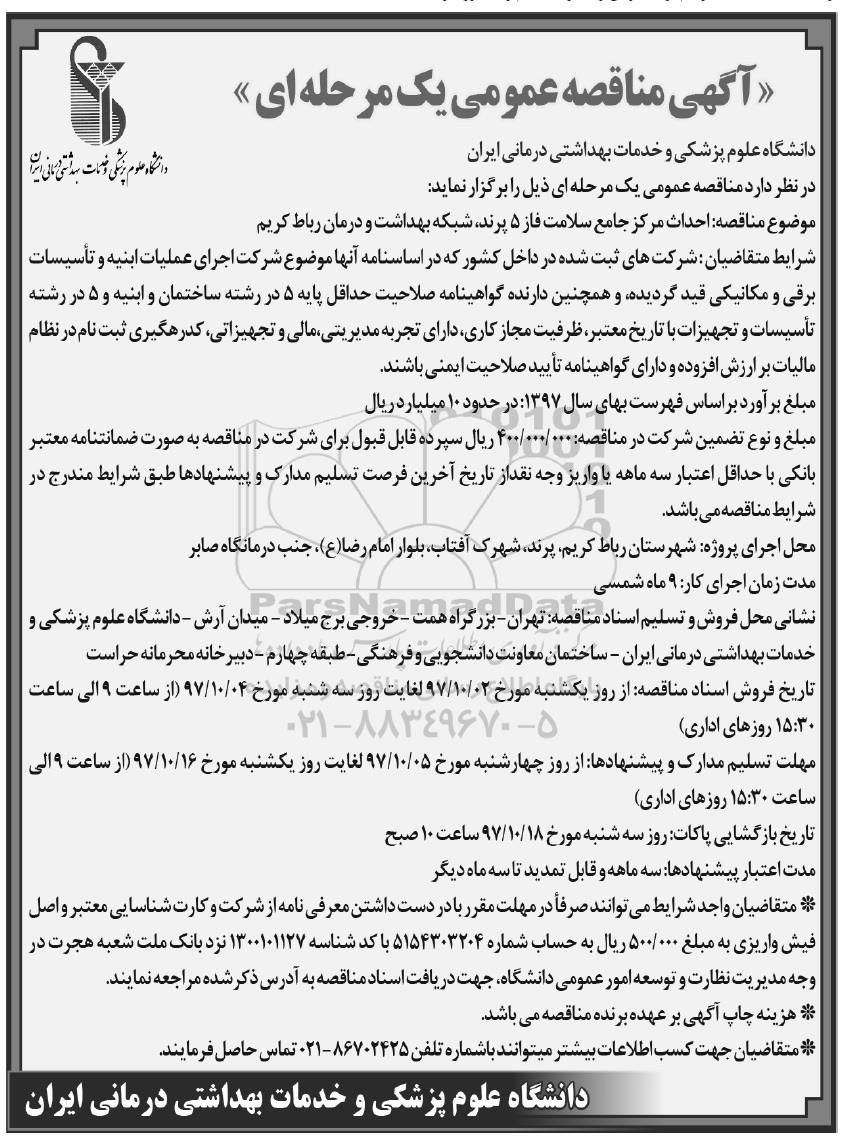 «آگهی مناقصه عمومی یک مرحله ای»
دانشگاه علوم پزشکی و خدمات بهداشتی درمانی ایران
دانشگاه علوم پزشکی و خدمات بهداشتی درمانی ایران
در نظر دارد مناقصه عمومی یک مرحله ای ذیل را برگزار نماید:
موضوع مناقصه: احداث مرکز جامع سلامت فاز ۵ پرند، شبکه بهداشت و درمان رباط کریم
شرایط متقاضیان: شرکت های ثبت شده در داخل کشور که در اساسنامه آنها موضوع شرکت اجرای عملیات ابنیه و تأسیسات
برقی و مکانیکی قید گردیده، و همچنین دارنده گواهینامه صلاحیت حداقل پایه ۵ در رشته ساختمان و ابنیه و ۵ در رشته
تأسیسات و تجهیزات با تاریخ معتبر، ظرفیت مجاز کاری، دارای تجربه مدیریتی، مالی و تجهیزاتی، کدرهگیری ثبت نام در نظام
مالیات بر ارزش افزوده و دارای گواهینامه تأیید صلاحیت ایمنی باشند.
مبلغ برآورد براساس فهرست بهای سال ۱۳۹۷: در حدود ۱۰ میلیارد ریال
مبلغ و نوع تضمین شرکت در مناقصه: ۴۰۰/۰۰۰/۰۰۰ ریال سپرده قابل قبول برای شرکت در مناقصه به صورت ضمانتنامه معتبر
بانکی با حداقل اعتبار سه ماهه یا واریز وجه نقد از تاریخ آخرین فرصت تسلیم مدارک و پیشنهادها طبق شرایط مندرج در
شرایط مناقصه می باشد.
محل اجرای پروژه: شهرستان رباط کریم، پرند، شهرک آفتاب، بلوار امام رضا(ع)، جنب درمانگاه صابر
مدت زمان اجرای کار: ۹ ماه شمسی
ParsNamadData
نشانی محل فروش و تسلیم اسناد مناقصه: تهران- بزرگراه همت - خروجی برج میلاد - میدان آرش -دانشگاه علوم پزشکی و
خدمات بهداشتی درمانی ایران - ساختمان معاونت دانشجویی و فرهنگی- طبقه چهارم -دبیرخانه محرمانه حراست
تاریخ فروش اسناد مناقصه: از روز یکشنبه مورخ ۹۷/۱۰/۰۲ لغایت روز سه شنبه مورخ ۹۷/۱۰/۰۴ (از ساعت ۹ الی ساعت
۱۵:۳۰ روزهای اداری)
۰۲۱-۸۸۳۴۹۶۷۰-۵
مهلت تسلیم مدارک و پیشنهادها: از روز چهارشنبه مورخ ۹۷/۱۰/۰۵ لغایت روز یکشنبه مورخ ۹۷/۱۰/۱۶ (از ساعت ۹ الی
ساعت ۱۵:۳۰ روزهای اداری)
تاریخ بازگشایی پاکات: روز سه شنبه مورخ ۹۷/۱۰/۱۸ ساعت ۱۰ صبح
مدت اعتبار پیشنهادها: سه ماهه و قابل تمدید تا سه ماه دیگر
❊ متقاضیان واجد شرایط می توانند صرفاً در مهلت مقرر با در دست داشتن معرفی نامه از شرکت و کارت شناسایی معتبر و اصل
فیش واریزی به مبلغ ۵۰۰/۰۰۰ ریال به حساب شماره ۵۱۵۴۳۰۳۲۰۴ با کد شناسه ۱۳۰۰۱۰۱۱۲۷ نزد بانک ملت شعبه هجرت در
وجه مدیریت نظارت و توسعه امور عمومی دانشگاه، جهت دریافت اسناد مناقصه به آدرس ذکر شده مراجعه نمایند.
❊ هزینه چاپ آگهی بر عهده برنده مناقصه می باشد.
❊متقاضیان جهت کسب اطلاعات بیشتر میتوانند باشماره تلفن ۸۶۷۰۲۴۲۵ -۰۲۱ تماس حاصل فرمایند.
دانشگاه علوم پزشکی و خدمات بهداشتی درمانی ایران